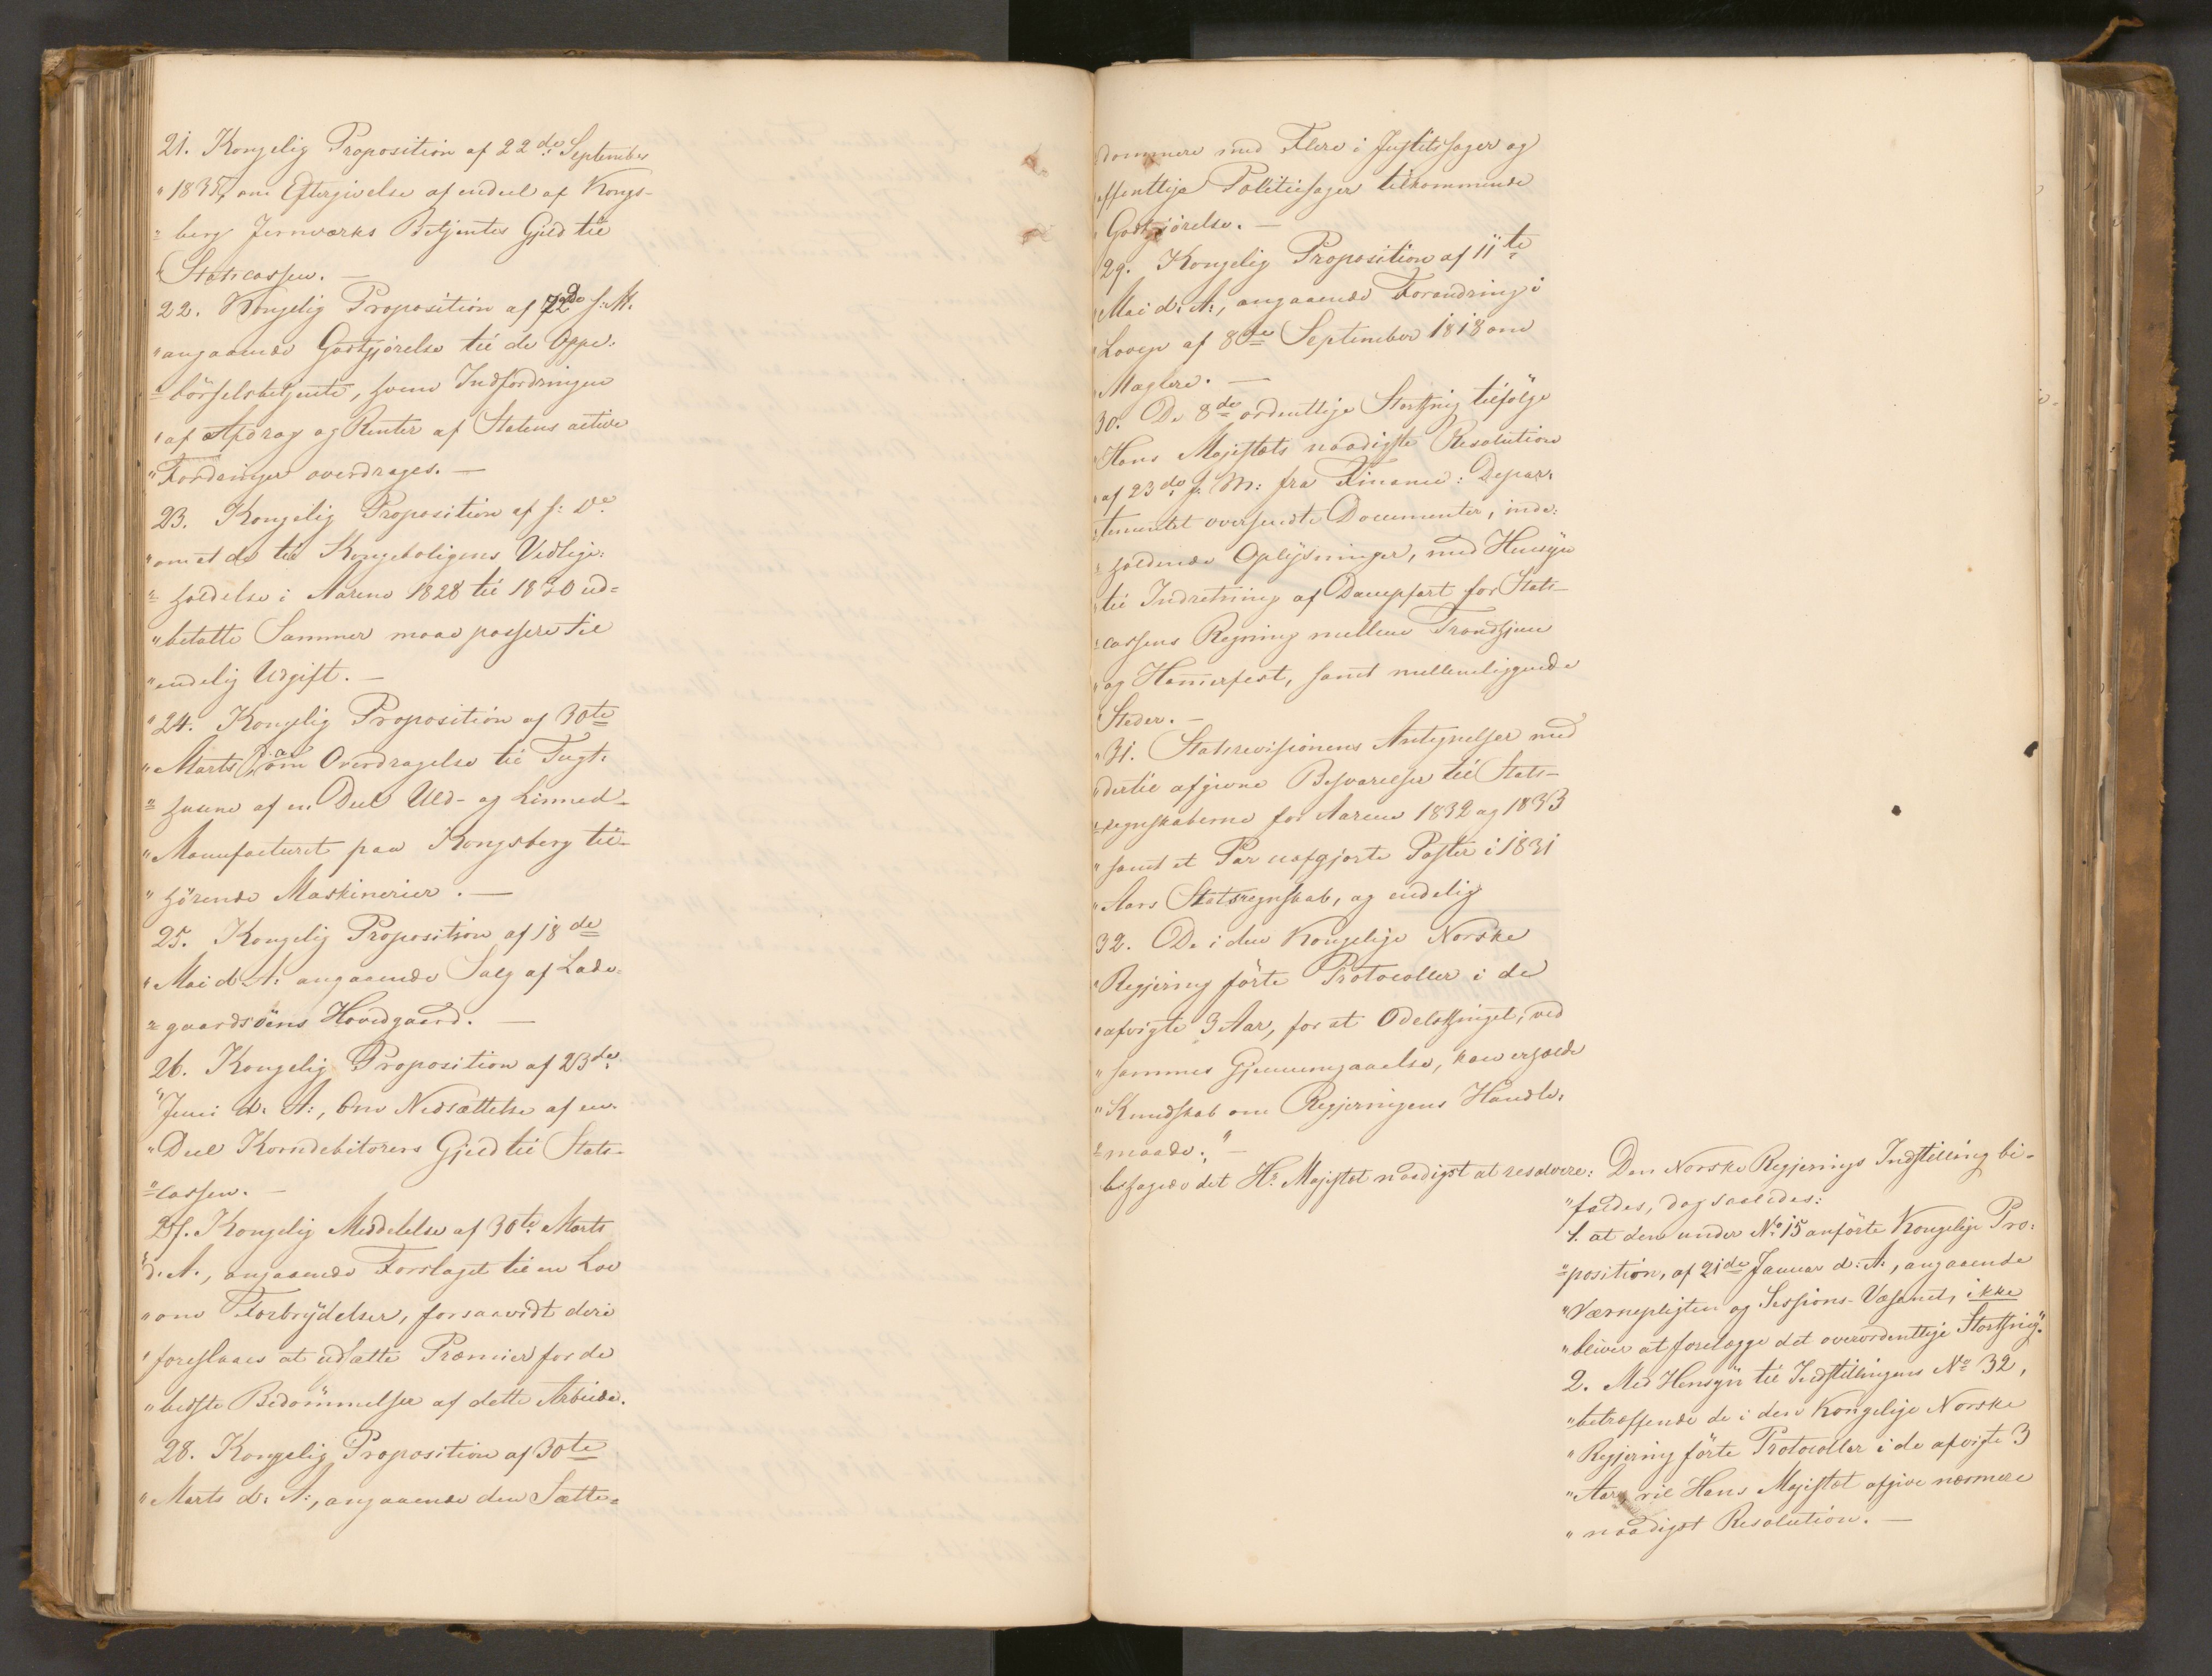 21. Kongelig Proposition af 22de September
" 1835, om Eftergivelse af endeel af Kongs-
" berg Jernværks Betjentes Gjeld til
" Statscassen. —
22. Kongelig Proposition af 22de s: M.
" angaaende Godtgjörelse til de Oppe-
" börselsbetjente, hvem Indfordringen
" af Afdrag og Renter af Statens active
" Fordringer overdrages. —
23. Kongelig Proposition af s: D.
" om at de til Kongeboligens Vedlige-
" holdelse i Aarene 1828 til 1830 ud=
" betalte Summer maae passere til
" endelig Udgift. —
" 24. Kongelig Proposition af 30te
" Marts d. A. om Overdragelse til Tugt-
" husene af en Deel Uld- og Linned-
" Manufacturet paa Kongsberg til-
" hörende Maskinerier. —
25. Kongelig Proposition af 18de
" Mai d. A: angaaende Salg af Lade-
" gaardsöens Hovedgaard. —
26. Kongelig Proposition af 23de
" Juni d: A:, om Nedsættelse af en
" Deel Korndebitorers Gjeld til Stats-
" cassen. —
27. Kongelig Meddelelse af 30te Marts
" d. A., angaaende Forslaget til en Lov
" om Forbrydelser, forsaavidt deri
" foreslaaes at udsætte Præmier for de
" bedste Bedömmelser af dette Arbeide.
28. Kongelig Proposition af 30te
" Marts d: A:, angaaende den Sætte=
dommere med Flere i Justitssager og
offentlige Politiesager tilkommende
" Godtgjörelse. —
29. Kongelig Proposition af 11te
" Mai d. A:, angaaende Forandring i
" Loven af 8de September 1818 om
" Mæglere. —
30. De 8de ordentlige Storthing tilfölge
" Hans Majestæts naadigste Resolution
" af 23de f. M: fra Finance: Depar-
" tementet oversendte Documenter, inde-
" holdende Oplysninger, med Hensyn
" til Indretning af Dampfart for Stats-
" cassens Regning mellem Trondhjem
" og Hammerfest, samt mellemliggende
" Steder. —
" 31. Statsrevisionens Antegnelser med
" dertil afgivne Besvarelser til Stats-
" regnskaberne for Aarene 1832 og 1833
" samt et Par uafgjorte Poster i 1831
" Aars Statsregnskab, og endelig
32. De i den Kongelige Norske
" Regjering förte Protocoller i de
" afvigte 3 Aar, for at Odelsthinget, ved
" sammes Gjennemgaaelse, kan erholde
" Kundskab om Regjeringens Handle-
" maade." —
behagede det Hs Majestæt naadigst at resolvere: Den Norske Regjerings Indstilling bi-
" faldes, dog saaledes:
1. at den under No 15 anförte Kongelige Pro-
" position, af 21de Januar d: A:, angaaende
" Værnepligten og Sessions-Væsenet, ikke
" bliver at forelægge det overordentlige Storthing."
2. Med Hensyn til Indstillingens No 32,
" betræffende de i den Kongelige Norske
" Regjering förte Protocoller i de afvigte 3
" Aar, vil Hans Majestæt afgive nærmere
" naadigst Resolution. —